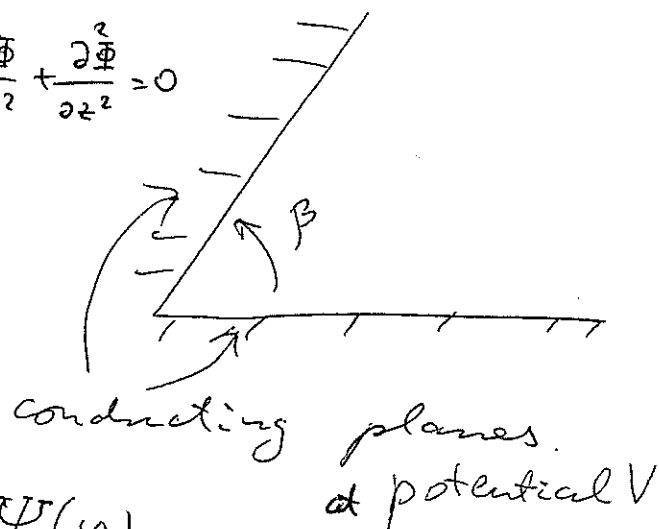 ∂²Φ/∂z² = 0
β
conducting planes.
at potential V
Ψ(φ)